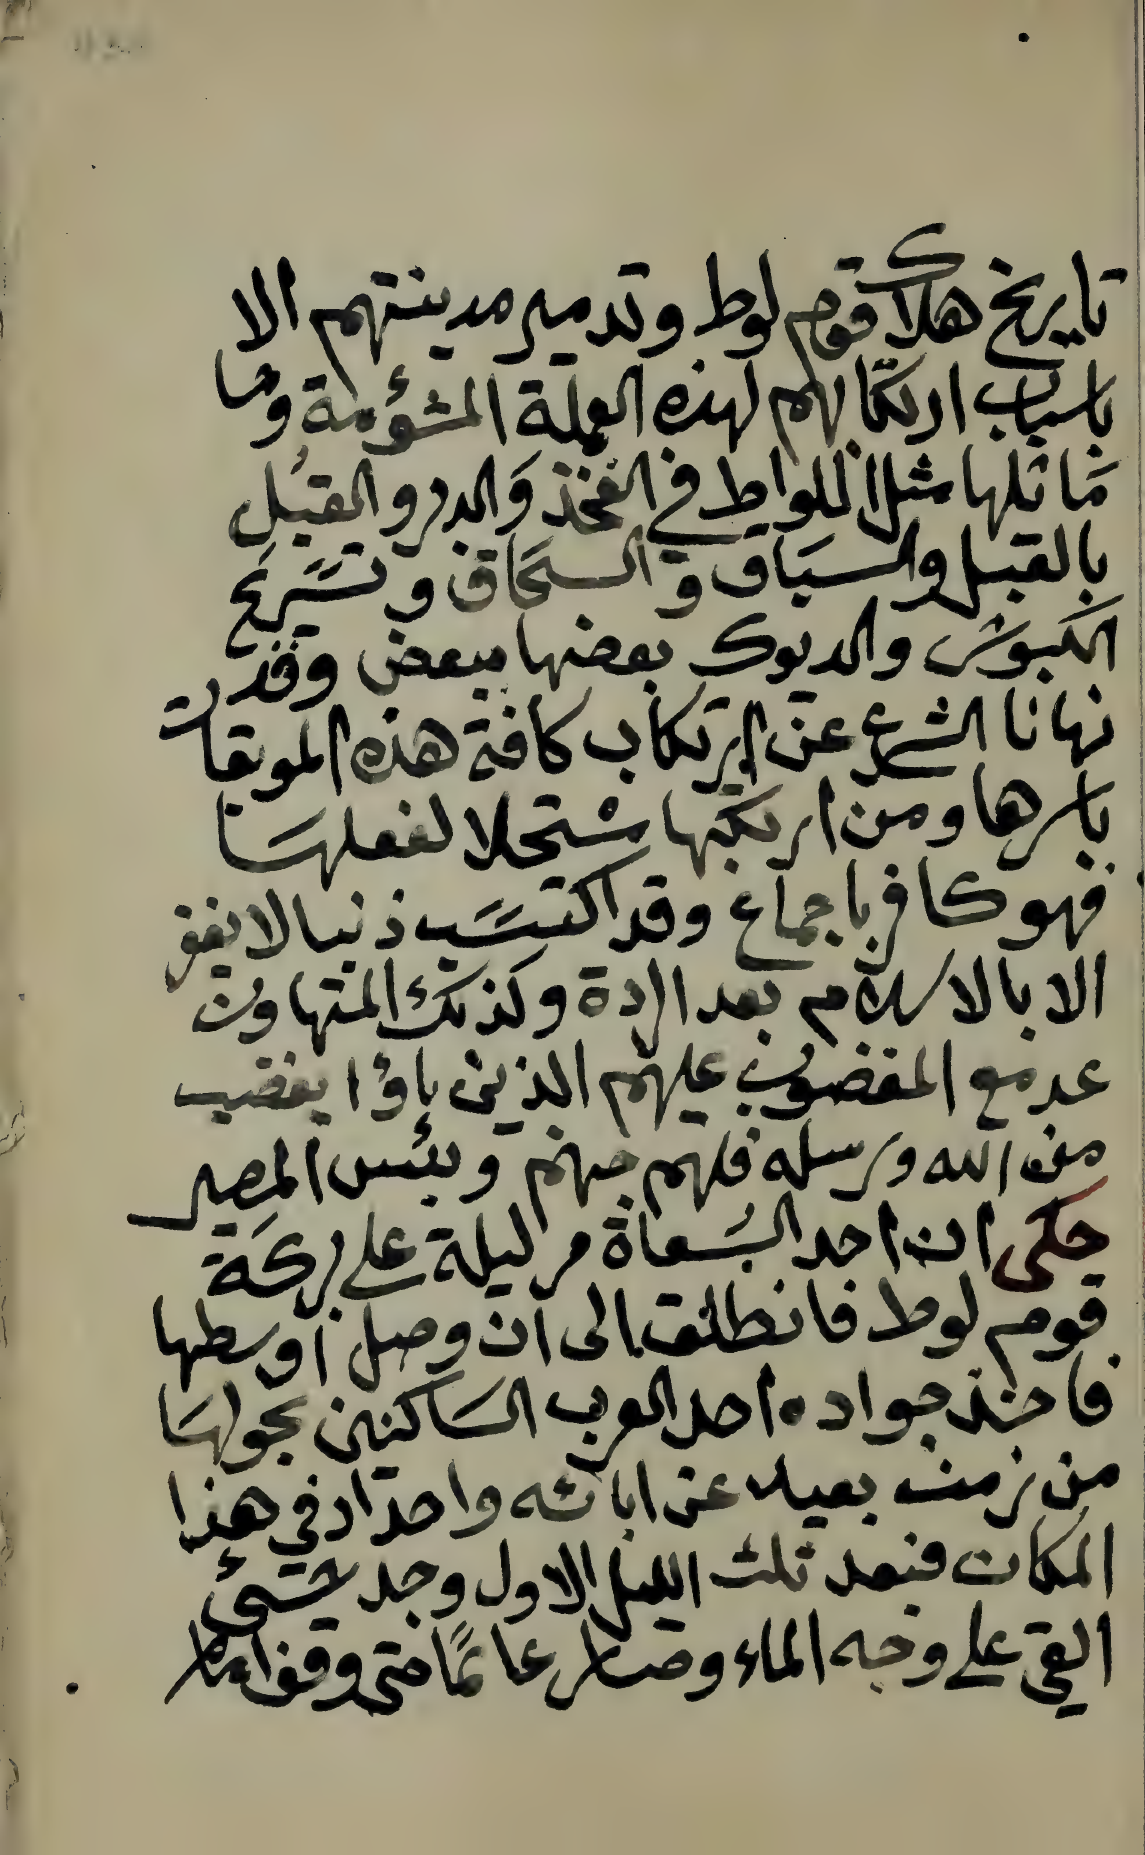 تاريخ هلاك قوم لوط وتدمير مدينتهم الا
باسباب ارتكابهم لهذه العملة المشؤمة وما
ماثلها مثل اللواط في الفخذ والدبر والقبل
بالقبل والسباق والسحاق و
الكبوش والديوك بعضها ببعض وقد
نهانا الشرع عن ارتكاب كافة هذه الموبقات
باسرها ومن ارتكبها مستحلا لفعلها
فهو كافر باجماع وقد اكتسب ذنبا لا يغفر
الا بالاسلام بعد الردة وكذلك المتهاون
عد مع المغضوب عليهم الذين باؤا بغضب
من الله ورسله فلهم جهنم وبئس المصير
حكى ان احد السعاة مر ليلة على بركة
قوم لوط فانطلق الى ان وصل اوسطها
فاخذ جواده احد العرب الساكنين بحولها
من زمن بعيد عن ابائه واجداد في هذا
المكان فبعد ثلث الليل الاول وجد شئ
القي على وجه الماء وصار عائما حتى وقف امام